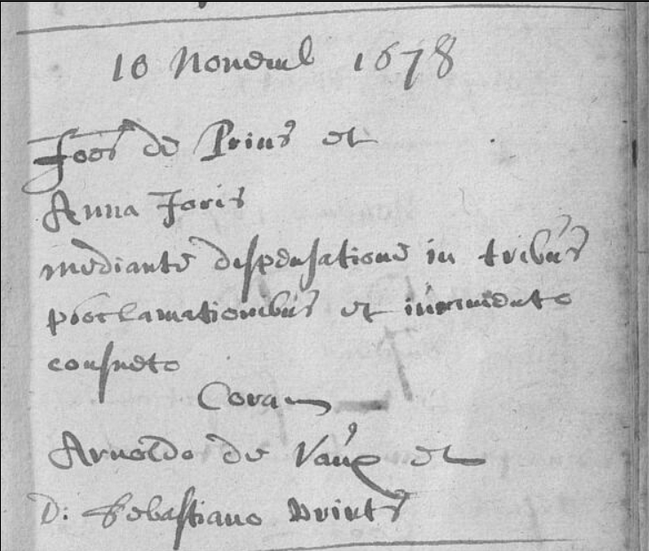 10 Novembris 1678
Joe͠s de Prins et
Anna Joris
mediante dispensatione in tribus
proclamationibus et iuramento
consueto
Coram
Arnoldo de Vaux et
D: Sebastiano Prints